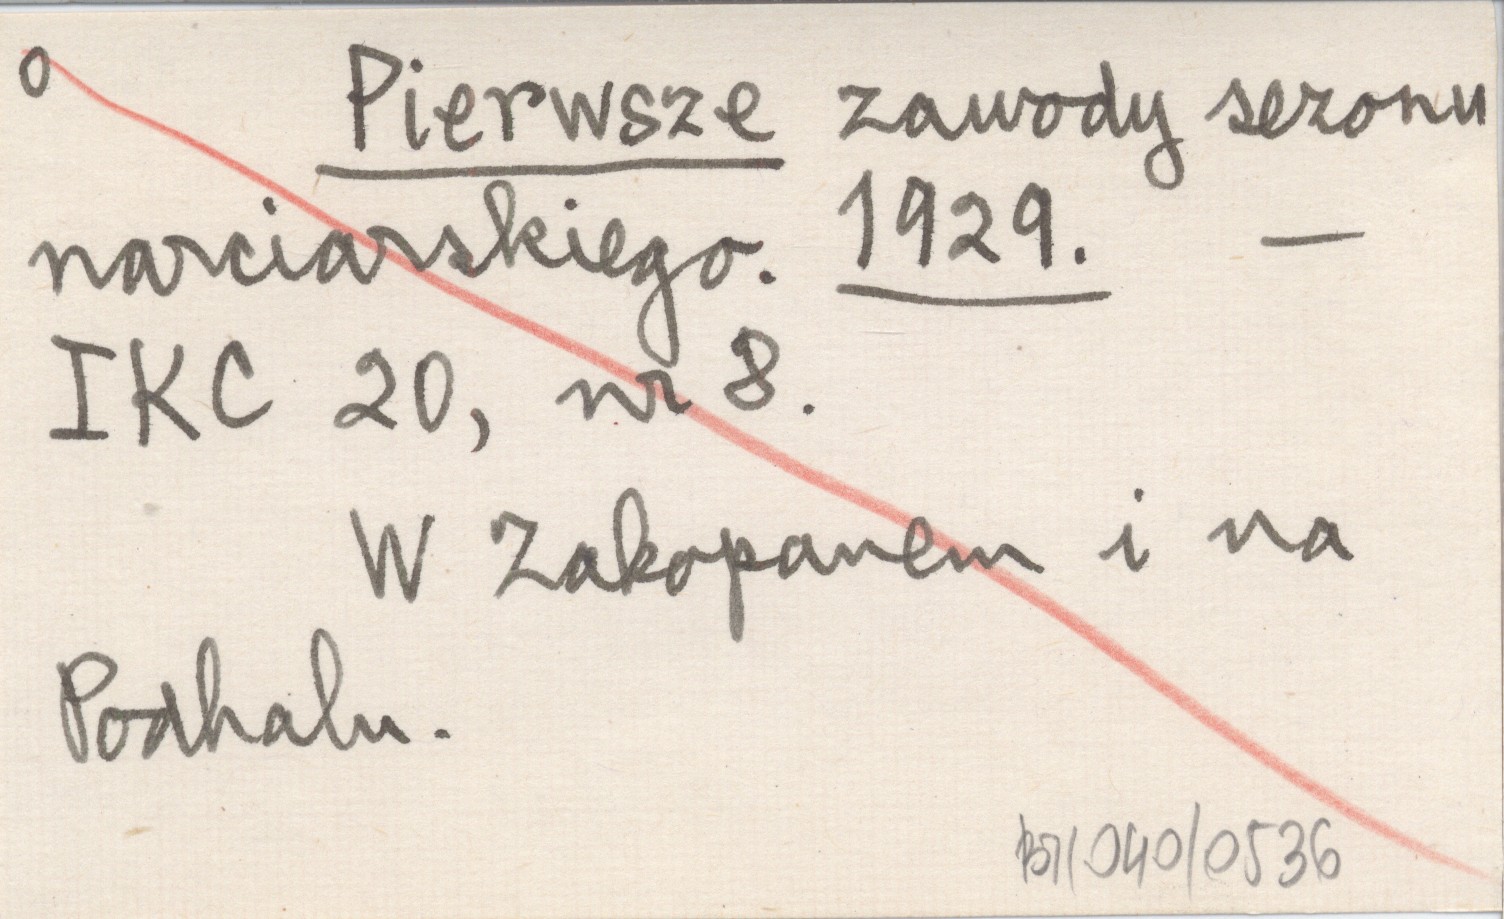 o Pierwsze zawody sezonu
narciarskiego. 1929. —
IKC 20, nr 8.
W Zakopanem i na
Podhalu.
/040/0536